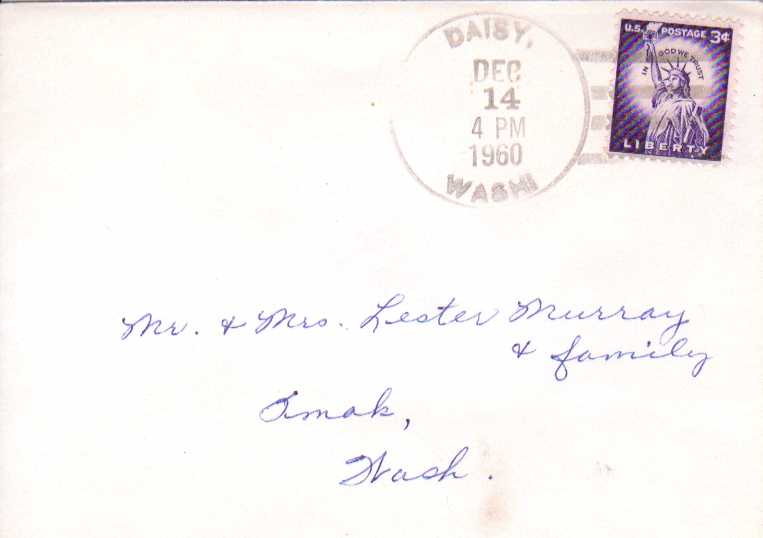 DAISY,
DEC
14
4 PM
1960
WASH
U.S. POSTAGE 3¢
IN GOD WE TRUST
LIBERTY
Mr. & Mrs. Lester Murray
& family
Omak,
Wash.